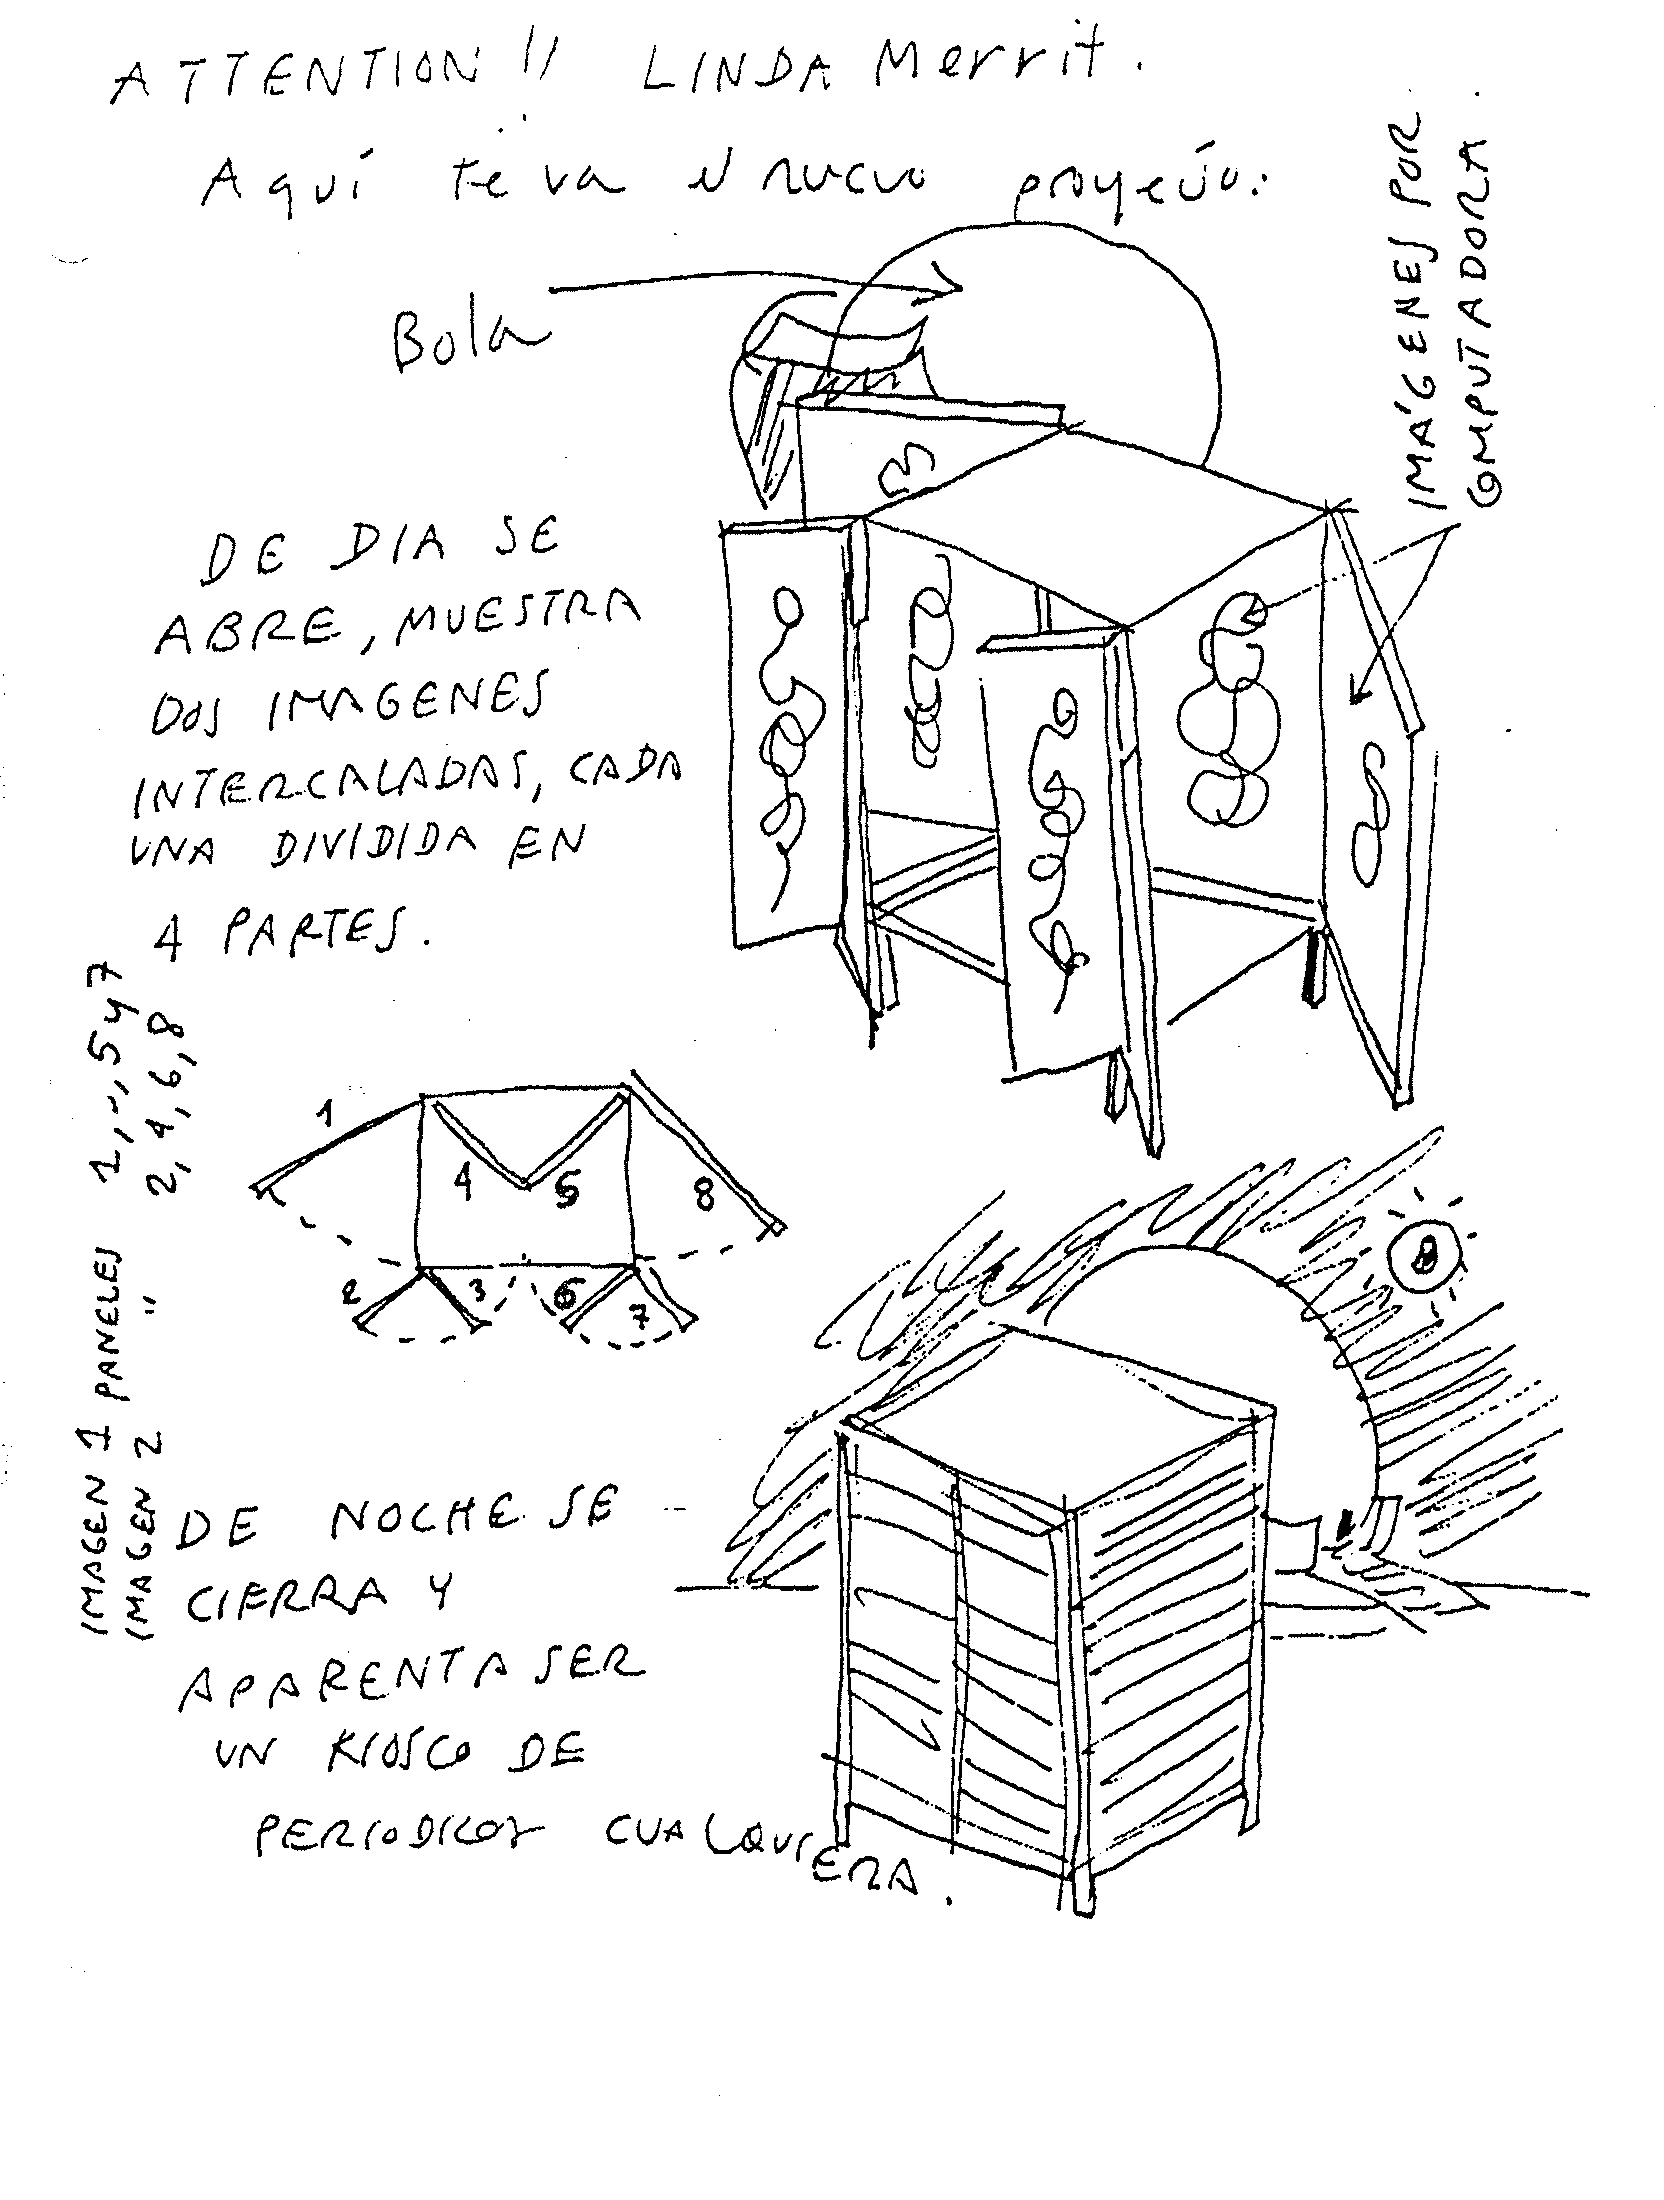 ATTENTION!! LINDA Merrit.
Aquí te va el nuevo proyecto.
Bola
IMÁGENES POR
COMPUTADORA.
DE DIA SE
ABRE, MUESTRA
DOS IMAGENES
INTERCALADAS, CADA
UNA DIVIDIDA EN
4 PARTES.
IMAGEN 1 PANELES 1, 5 y 7
IMAGEN 2 " 2, 4, 6, 8
1
4
5
8
2
3
6
7
DE NOCHE SE
CIERRA Y
APARENTA SER
UN KIOSCO DE
PERIODICOS CUALQUIERA.